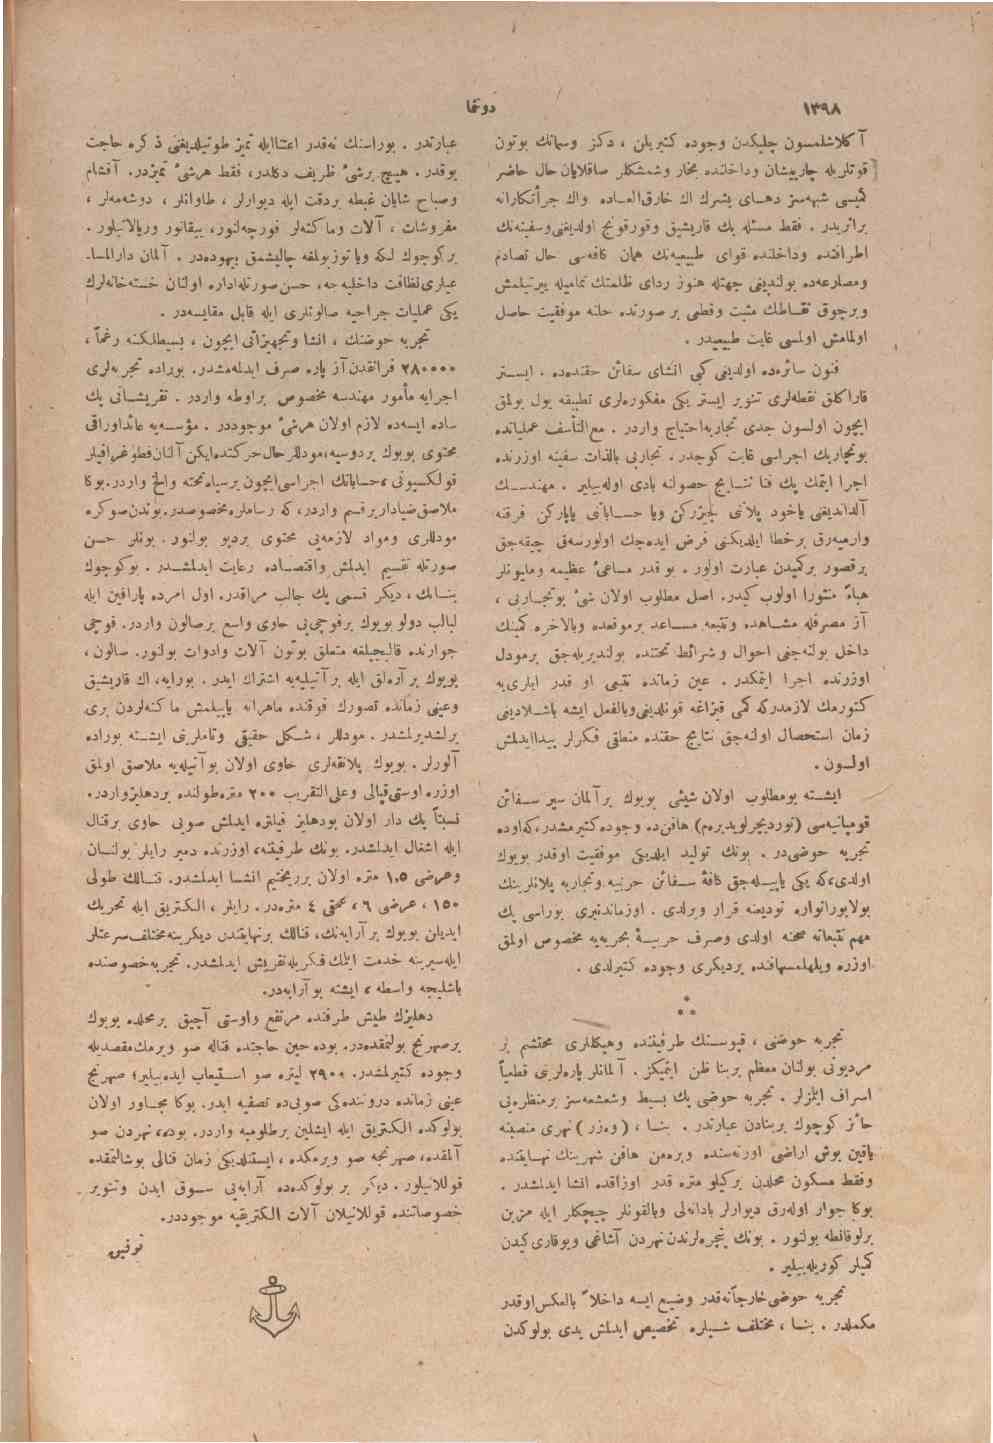 ١٣٩٨
دوننما
آ كلاشلمسون چليكدن وجوده كتيريلن ، دكز وسمانك بوتون
قوتلريله چارپيشان وداخلنده بخار وشمشكلر صاقلايان حال حاضر
كميسى شبهه‌سز دهـاى بشرك اك خارق‌العـاده واك جرأتكارانه
براثريدر . فقط مسئله پك قاريشيق وقورقونج اولديغى‌وسفينه‌نك
اطرافنده وداخلنده قواى طبيعيه‌نك همان كافه‌سى حال تصادم
ومصارعه‌ده بولنديغى جهتله هنوز رداى ظلمتك تماميله ييرتيلمش
وبرچوق نقـاطك مثبت وقطعى بر صورتده حلنه موفقيت حاصل
اولمامش اولمسى غايت طبيعيدر .
فنون سائره‌ده اولديغى كبى انشاى سفائن حقنده‌ده . ايسـتر
قارا كلق نقطه‌لرى تنوير ايستر يكى مفكوره‌لرى تطبيقه يول بولمق
ايچون اولسون جدى تجاربه‌احتياج واردر . مع‌التأسف عملياتده
بوتجاربك اجراسى غايت كوجدر . تجاربى بالذات سفينه اوزرنده
اجرا ايتمك پك فنا نتـايج حصولنه بادى اوله‌بيلير . مهندســك
آلدانديغى ياخود پلانى چيزركن ويا حسـاباتى ياپاركن فرقنه
وارميه‌رق برخطا ايلديكنى فرض ايده‌جك اولورسه‌ق چيقه‌جق
برقصور بركميدن عبارت اولور . بو قدر مساعىٔ عظيمه ومليونلر
هباءً منثورا اولوب كيدر. اصل مطلوب اولان شىٔ بوتجـاربى ،
آز مصرفله مشـاهده وتتبعه مسـاعد برموقعده وبالاخره كمينك
داخل بولنه‌جغى احوال وشرائط تحتنده بولنديريله‌جق برمودل
اوزرنده اجرا ايتمكدر . عين زمانده تتبعى او قدر ايلرى‌يه
كتورمك لازمدركه كمى قيزاغه قونلديغى‌وبالفعل ايشه باشـلاديغى
زمان استحصال اولنه‌جق نتايج حقنده منطقى فكرلر پيداايدلمش
اولسون .
ايشـته بومطلوب اولان شيئى بويوك برآلمان سير سـفائن
قومپانيه‌سى (نورديچرلويدبره‌م) هافن‌ده وجوده‌كتيرمشدر،كه‌اوده
تجربه حوضى‌در . بونك توليد ايلديكى موفقيت اوقدر بويوك
اولدى،كه يكى ياپيـله‌جق كافهٔ سـفائن حربيه‌وتجاريه پلانلرينك
بولابوراتواره توديعنه قرار ويرلدى . اوزماندنبرى بوراسى پك
مهم تتبعاته صحنه اولدى وصرف حربيـهٔ بحريه‌يه مخصوص اولمق
اوزره ويلهلمسهافنده برديكرى وجوده كتيرلدى .
*
* *
تجربه حوضنى ، قپوسـنك طرفيننده وهيكللرى محتشم بر
مرديونى بولنان معظم بربنا ظن ايتميكز . آلمانلر پاره‌لرنى قطعياً
اسراف ايتمزلر . تجربه حوضى پك بسيط وشعشعه‌سز برمنظره‌نى
حائز كوچوك بربنادن عبارتدر . بنـا ، (وه‌زر) نهرى منصبنه
ياقين بوش اراضى اورته‌سنده وبره‌من هافن شهرينك نهـايتنده
وفقط مسكون محلدن بركيلو متره قدر اوزاقده انشا ايدلمشدر .
بوكا جوار اوله‌رق ديوارلر بادانه‌لى وبالقونلر چيچكلر ايله مزين
برلوقانطه بولنور . بونك پنجره‌لرندن نهردن آشاغى ويوقارى كيدن
كميلر كوريله‌بيلير .
تجربه حوضى خارجاً نه‌قدر وضيع ايسه داخلاً بالعكس اوقدر
مكملدر . بنـا ، مختلف شـيلره تخصيص ايدلمش يدى بولوكدن
عبارتدر . بوراسنك نه‌قدر اعتناايله تميز طوتيلديغنى ذكره حاجت
يوقدر. هيـچ برشىٔ ظريف دكلدر، فقط هرشىٔ تميزدر. آقشام
وصباح شايان غبطه بردقت ايله ديوارلر ، طاوانلر ، دوشمه‌لر ،
مفروشات ، آلات وماكنه‌لر فورچه‌لنور، ييقانور وپارلاتيلور .
بركوچوك لكه ويا توزبولمغه چاليشمق بيهوده‌در . آلمان دارالمسا‌ـ
عيلرى‌نظافت داخليه‌جه، حسن‌صورتله‌اداره اولنان خسته‌خانه‌لرك
يكى عمليات جراحيه صالونلرى ايله قابل مقايسه‌در .
تجربه حوضنك ، انشا وتجهيزاتى ايچون ، بسيطلكنه رغماً ،
٢٨٠٠٠٠ فرانقدن آز پاره صرف ايدلمه‌مشدر. بوراده تجربه‌لرى
اجرايه مأمور مهندسه مخصوص براوطه واردر . تقريشـاتى پك
سـاده ايسه‌ده لازم اولان هرشىٔ موجوددر . مؤسـسه‌يه عائداوراقى
محتوى بويوك بردوسيه،موديللر حال‌حركتده‌ايكن آلنان‌فطوغرافيلر
قوللكسيونى ،حساباتك اجراسى‌ايچون برسياه‌تخته والخ واردر.بوكا
ملاصق‌ضياداربرقسم واردر، كه رساملره‌مخصوصدر.بوندن‌صوكره
موديللرى ومواد لازمه‌يى محتوى برديو بولنور . بونلر حسن
صورتله تقسيم ايدلمش واقتصـاده رعايت ايدلمشـدر . بوكوچوك
بنـانك ، ديكر قسمى پك جالب مراقدر. اول امرده پارافين ايله
لبالب دولو بويوك برفوچى‌يى حاوى واسع برصالون واردر. فوچى
جوارنده قالبجيلغه متعلق بوتون آلات وادوات بولنور. صالون ،
بويوك برآره‌لق ايله برآتيليه‌يه اشتراك ايدر . بورايه، اك قاريشيق
وعينى زمانده تصورك فوقنده ماهرانه ياپيلمش ماكنه‌لردن برى
يرلشديرلمشدر . موديللر ، شـكل حقيقى وتاملرينى ايشـته بوراده
آلورلر . بويوك پلانقه‌لرى حاوى اولان بوآتيليه‌يه ملاصق اولمق
اوزره اوستى‌قپالى وعلى‌التقريب ٢٠٠ متره‌طولنده بردهليزواردر.
نسبتاً پك دار اولان بودهليز فيلتره ايدلمش صويى حاوى برقنال
ايله اشغال ايدلمشدر. بونك طرفيننه، اوزرنده دمير رايلر بولنــان
وعرضى ١,٥ متره اولان بررختيم انشـا ايدلمشدر. قنـالك طولى
١٥٠ ، عرضى ٦ ، عمقى ٤ متره‌در. رايلر ، الكتريق ايله تحريك
ايديلن بويوك برآرابه‌نك، قنالك برنهايتندن ديكرينه‌مختلف‌سرعتلر
ايله‌سيرينه خدمت ايتمك فكريله‌تفريش ايدلمشدر. تجربه‌خصوصنده
باشليجه واسطه ، ايشته بوآرابه‌در.
دهليزك طيش طرفنده مرتفع واوستى آچيق برمحلده بويوك
برصهرنج بولنمقده‌در. بوده حين حاجتده قناله صو ويرمك‌مقصديله
وجوده كتيرلمشدر. ٢٩٠٠ ليتره صو اسـتيعاب ايده‌بيلير؛ صهرنج
عينى زمانده دروننده‌كى صويى‌ده تصفيه ايدر. بوكا مجـاور اولان
بولوكده الكتريق ايله ايشلين برطلومبه واردر. بوده، نهردن صو
آلمقده، صهرنجه صو ويرمكده، ايستنلديكى زمان قنالى بوشالتمقده
قوللانيلور. ديكر بر بولوكده‌ده آرابه‌يى سـوق ايدن وتنوير
خصوصاتنده قوللانيلان آلات الكتريقيه موجوددر.
توفيق